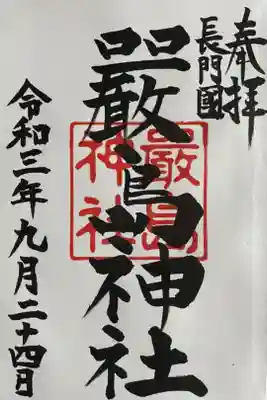 奉拝
長門國
嚴島神社
嚴島神社
令和三年九月二十四日